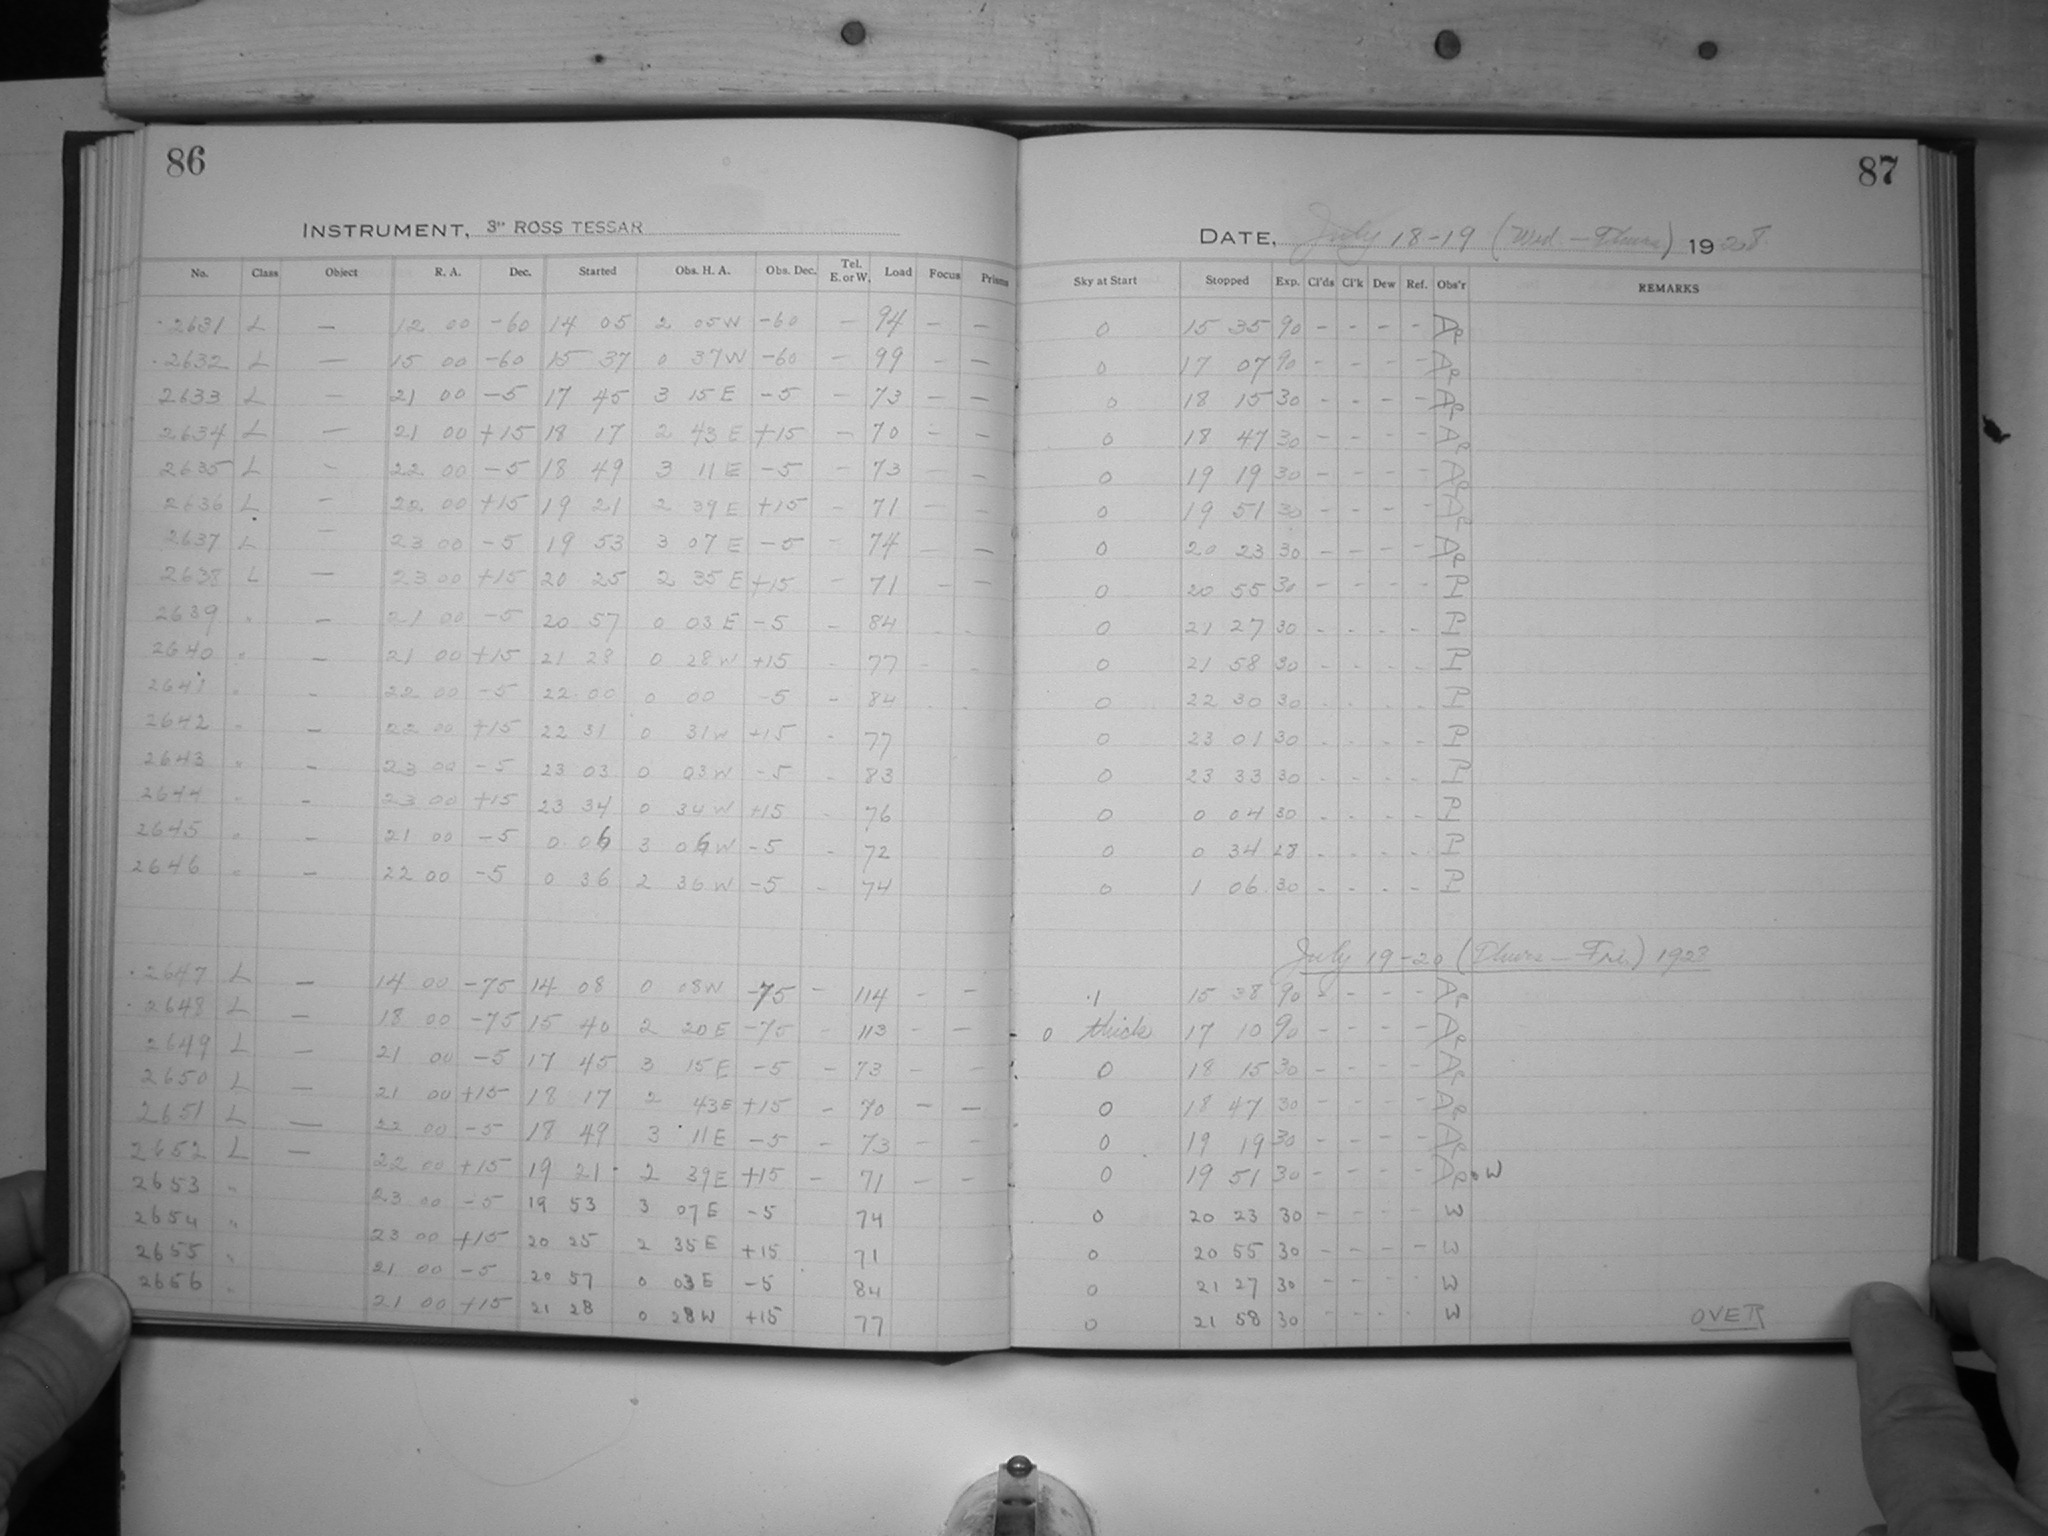 86
INSTRUMENT, 3" ROSS TESSAR
No. Class Object R. A. Dec. Started Obs. H. A. Obs. Dec. Tel. E. or W. Load Focus Prisms
2631 L — 12 00 -60 14 05 2 05 W -60 — 94 — —
2632 L — 15 00 -60 15 37 0 37 W -60 — 99 — —
2633 L — 21 00 -5 17 45 3 15 E -5 — 73 — —
2634 L — 21 00 +15 18 17 2 43 E +15 — 70 — —
2635 L — 22 00 -5 18 49 3 11 E -5 — 73 — —
2636 L — 22 00 +15 19 21 2 39 E +15 — 71 — —
2637 L — 23 00 -5 19 53 3 07 E -5 — 74 — —
2638 L — 23 00 +15 20 25 2 35 E +15 — 71 — —
2639 " — 21 00 -5 20 57 0 03 E -5 - 84 - -
2640 " — 21 00 +15 21 28 0 28 W +15 - 77 - -
2641 " - 22 00 -5 22 00 0 00 -5 - 84 - -
2642 " — 22 00 +15 22 31 0 31 W +15 - 77
2643 " — 23 00 -5 23 03 0 03 W -5 - 83
2644 " - 23 00 +15 23 34 0 34 W +15 - 76
2645 " - 21 00 -5 0 06 3 06 W -5 - 72
2646 " — 22 00 -5 0 36 2 36 W -5 - 74
2647 L — 14 00 -75 14 08 0 08 W -75 — 114 — —
2648 L — 18 00 -75 15 40 2 20 E -75 - 113 — —
2649 L — 21 00 -5 17 45 3 15 E -5 — 73 — —
2650 L — 21 00 +15 18 17 2 43 E +15 — 70 — —
2651 L — 22 00 -5 18 49 3 11 E -5 — 73 — —
2652 L — 22 00 +15 19 21 2 39 E +15 — 71 — —
2653 " 23 00 -5 19 53 3 07 E -5 74
2654 " 23 00 +15 20 25 2 35 E +15 71
2655 " 21 00 -5 20 57 0 03 E -5 84
2656 " 21 00 +15 21 28 0 28 W +15 77
87
DATE, July 18-19 (Wed. — Thurs) 1928
Sky at Start Stopped Exp. Cl'ds Cl'k Dew Ref. Obs'r REMARKS
0 15 35 90 - - - - Ae
0 17 07 90 - - - - Ae
0 18 15 30 - - - - Ae
0 18 47 30 - - - - Ae
0 19 19 30 - - - - Ae
0 19 51 30 - - - - Ae
0 20 23 30 - - - - Ae
0 20 55 30 - - - - P
0 21 27 30 - - - - P
0 21 58 30 - - - - P
0 22 30 30 - - - - P
0 23 01 30 - - - - P
0 23 33 30 - - - - P
0 0 04 30 - - - - P
0 0 34 28 - - - - P
0 1 06 30 - - - - P
July 19-20 (Thurs — Fri.) 1928
.1 15 38 90 - - - - Ae
0 thick 17 10 90 - - - - Ae
0 18 15 30 - - - - Ae
0 18 47 30 - - - - Ae
0 19 19 30 - - - - Ae
0 19 51 30 - - - - Ae.W
0 20 23 30 - - - - W
0 20 55 30 - - - - W
0 21 27 30 - - - - W
0 21 58 30 - - - - W
OVER